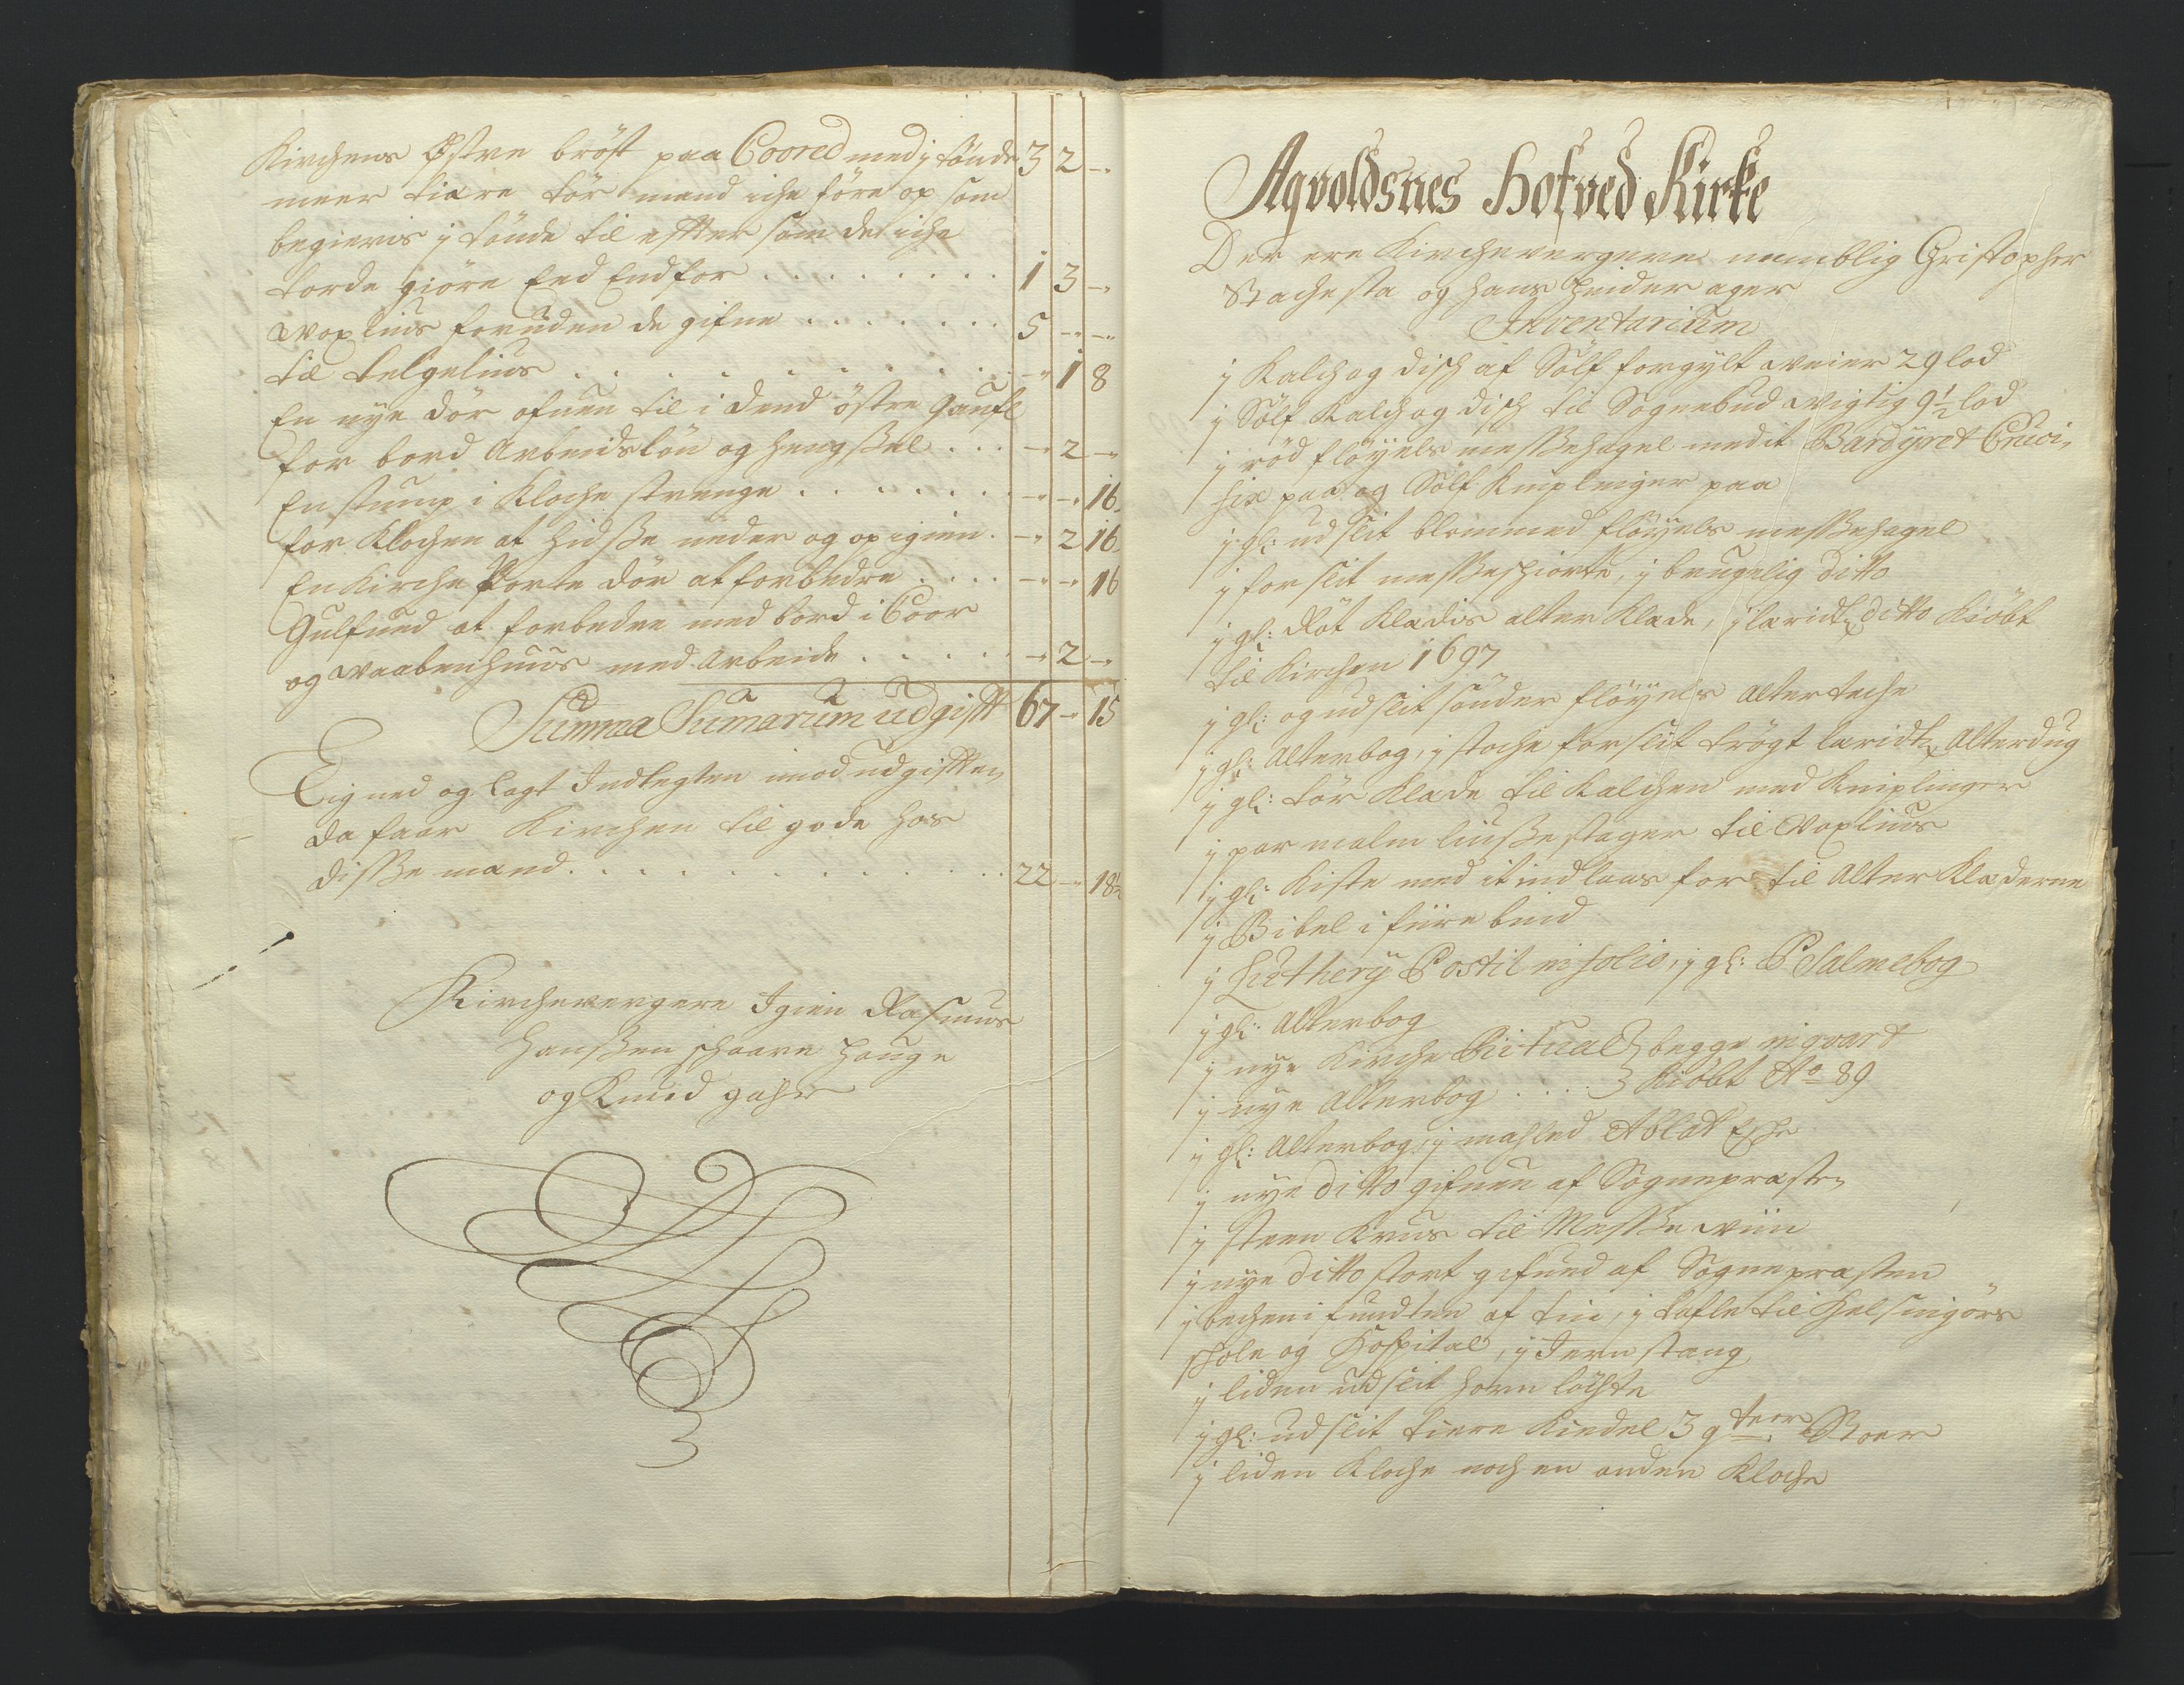 Kirchens Østre bröst paa Coored med j tönde 3 2 -
meer tiære tör mand iche före op som
begieris j tönde til effter som de iche
torde giöre Eed End for . . . . . . . . 1 3 -
woxliuus foruden de gifne . . . . . . . 5 - -
til telgeliuus . . . . . . . . . . - 1 8
En nye dör ofuen til i dend östre Gaufl
for bord Arbeidslön og hengßel . . . - 2 -
En stump i Kloche strenge . . . . . . . - - 16
for Klochen at hidße neder og op igien . - 2 16
En Kirche Porte dör at forbedre . . . . - - 16
Gulfued at forbedre med bord i Coor
og waabenhuus med Arbeide . . . . . - 2 -
Summa Sumarum udgifft 67 - 15
Ligned og lagt Indtegten imod udgifften
da faar Kirchen til gode hos
disße mænd . . . . . . . . . . . 22 - 18½
Kirchewergere Igien Rasmus
Hanßen Schaare Houge
og Knud
Aqvoldsnes Hofved Kirke
Der ere Kirchewergere nemblig Christopher
Stachesta og Hans ager
Inventarium
j Kalch og disch af Sölf forgylt weier 29 lod
j Sölf Kalch og disch til Sognebud wigtig 9½ lod
j röd flöyels meßehagel med it Bardyret Cruci,
fix paa og Sölf Kniplinger paa
j gl: udslit blommed flöyels meßehagel
j forslit meßeschiorte, j brugelig ditto
j gl: Röt Klædis alter Klæde, j læridts ditto Kiöbt
til Kirchen 1697
j gl: og udslit sönder flöyels alterteche
j gl: Alterbog, j stoche forslit trögt læridts Alterdug
j gl: tör Klæde til Kalchen med Kniplinger
j par malm liusße stager til woxliuus
j gl: Kiste med it ind laas for til Alter Klæderne
j Bibel i fiire bind
j Lutherij Postil in folio, j gl: PSalmebog
j gl: Alterbog
j nye Kirche Ritual } begge in qvart
j nye Alterbog . . . } Kiöbt Ao 89
j gl: Alterbog, j mahled Ablat Esche
j nye ditto gifuen af Sognepræsten
j Steen Kruus til Meßße wiin
j nye ditto stort gifued af Sognepræsten
j bechen i funten af tin, j tafle til Helsingörs
schole og Hospital, j Jern stang
j liden udslit horn löchte
j gl: udslit fiere Kiedel 3 qteer Stoer
j liden Kloche noch en anden Kloche